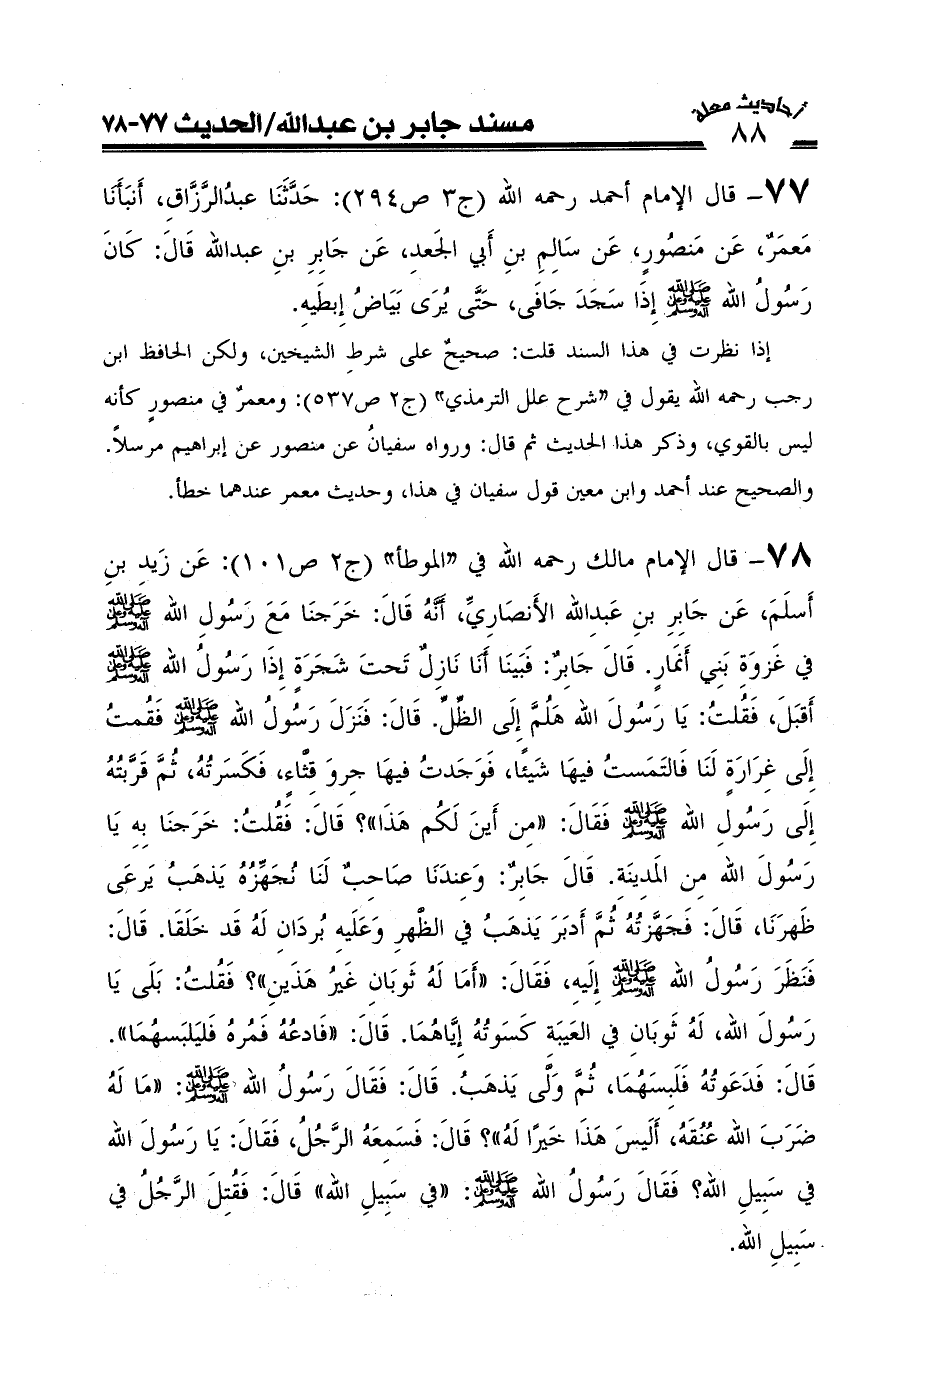 أحاديث معلة
٨٨
مسند جابر بن عبدالله/الحديث ٧٧-٧٨
٧٧- قال الإمام أحمد رحمه الله (ج٣ ص٢٩٤): حَدَّثَنَا عبدُالرَّزَّاق، أَنبَأَنَا
مَعمَرٌ، عَن مَنصُورٍ، عَن سَالِمِ بنِ أَبي الجَعدِ، عَن جَابِرِ بنِ عبدالله قَالَ: كَانَ
رَسُولُ الله ﷺ إِذَا سَجَدَ جَافَى، حَتَّى يُرَى بَيَاضُ إِبطَيهِ.
إذا نظرت في هذا السند قلت: صحيحٌ على شرطِ الشيخين، ولكن الحافظ ابن
رجب رحمه الله يقول في «شرح علل الترمذي» (ج٢ ص٥٣٧): ومعمرٌ في منصورٍ كأنه
ليس بالقوي، وذكر هذا الحديث ثم قال: ورواه سفيانُ عن منصور عن إبراهيم مرسلاً.
والصحيح عند أحمد وابن معين قول سفيان في هذا، وحديث معمر عندهما خطأ.
٧٨- قال الإمام مالك رحمه الله في «الموطأ» (ج٢ ص١٠١): عَن زَيدِ بنِ
أَسلَمَ، عَن جَابِرِ بنِ عَبدِالله الأَنصَارِيِّ، أَنَّهُ قَالَ: خَرَجنَا مَعَ رَسُولِ الله ﷺ
في غَزوَةِ بَنِي أَنمَارٍ. قَالَ جَابِرٌ: فَبَينَا أَنَا نَازِلٌ تَحتَ شَجَرَةٍ إِذَا رَسُولُ الله ﷺ
أَقبَلَ، فَقُلتُ: يَا رَسُولَ الله هَلُمَّ إِلَى الظِّلِّ. قَالَ: فَنَزَلَ رَسُولُ الله ﷺ فَقُمتُ
إِلَى غِرَارَةٍ لَنَا فَالتَمَستُ فِيهَا شَيئًا، فَوَجَدتُ فِيهَا جِروَ قِثَّاءٍ، فَكَسَرتُهُ، ثُمَّ قَرَّبتُهُ
إِلَى رَسُولِ الله ﷺ فَقَالَ: «مِن أَينَ لَكُم هَذَا»؟ قَالَ: فَقُلتُ: خَرَجنَا بِهِ يَا
رَسُولَ الله مِن المَدِينَةِ. قَالَ جَابِرٌ: وَعِندَنَا صَاحِبٌ لَنَا نُجَهِّزُهُ يَذهَبُ يَرعَى
ظَهرَنَا، قَالَ: فَجَهَّزتُهُ ثُمَّ أَدبَرَ يَذهَبُ في الظَّهرِ وَعَلَيهِ بُردَانِ لَهُ قَد خَلَقَا. قَالَ:
فَنَظَرَ رَسُولُ الله ﷺ إِلَيهِ، فَقَالَ: «أَمَا لَهُ ثَوبَانِ غَيرُ هَذَينِ»؟ فَقُلتُ: بَلَى يَا
رَسُولَ الله، لَهُ ثَوبَانِ في العَيبَةِ كَسَوتُهُ إِيَّاهُمَا. قَالَ: «فَادعُهُ فَمُرهُ فَليَلبَسهُمَا».
قَالَ: فَدَعَوتُهُ فَلَبِسَهُمَا، ثُمَّ وَلَّى يَذهَبُ. قَالَ: فَقَالَ رَسُولُ الله ﷺ: «مَا لَهُ
ضَرَبَ الله عُنُقَهُ، أَلَيسَ هَذَا خَيرًا لَهُ»؟ قَالَ: فَسَمِعَهُ الرَّجُلُ، فَقَالَ: يَا رَسُولَ الله
في سَبِيلِ الله؟ فَقَالَ رَسُولُ الله ﷺ: «في سَبِيلِ الله» قَالَ: فَقُتِلَ الرَّجُلُ في
سَبِيلِ الله.